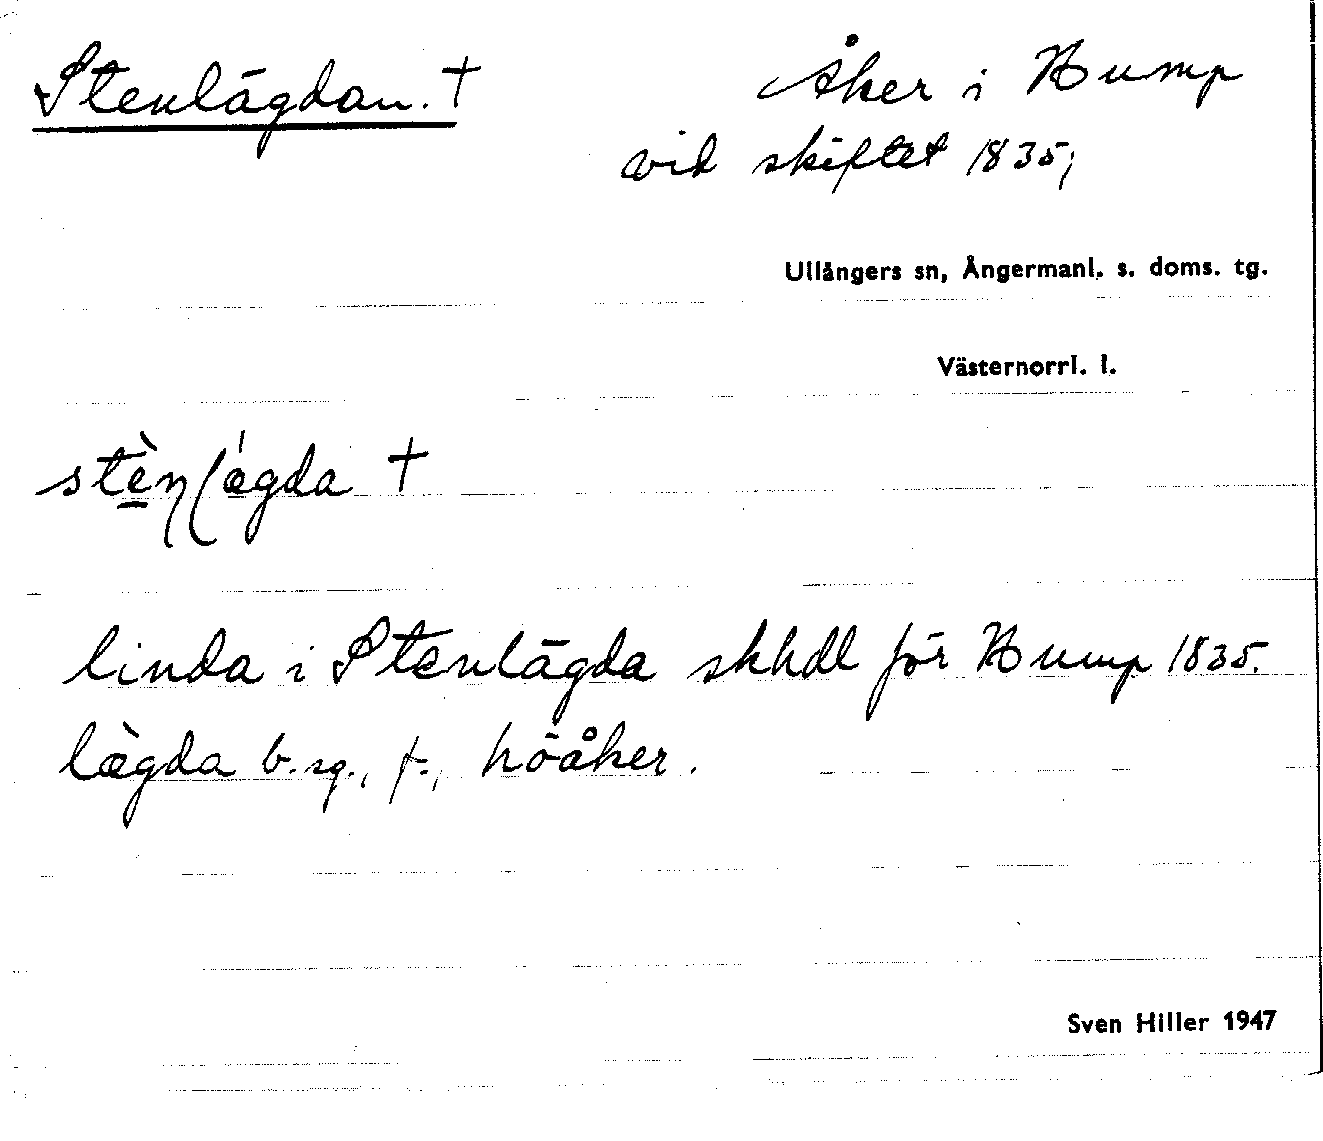 Stenlägdan. † Åker i Hump
vid skiftet 1835;
Ullångers sn, Ångermanl. s. doms. tg.
Västernorrl. l.
†
linda i Stenlägda skhdl för Hump 1835.
lægda b. sg., f., höåker.
Sven Hiller 1947